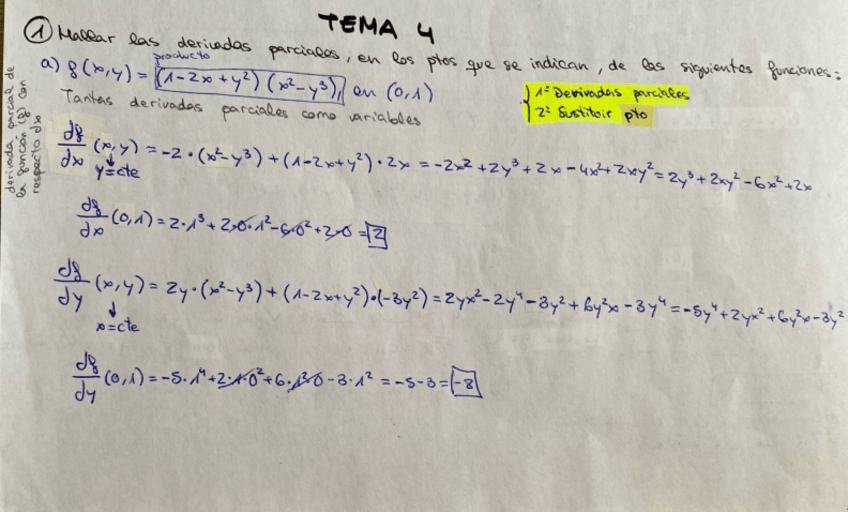 TEMA 4
① Hallar las derivadas parciales, en los ptos que se indican, de las siguientes funciones:
producto
a) f(x,y) = (1-2x+y²) (x²-y³), en (0,1)
1º Derivadas parciales
2º Sustituir pto
Tantas derivadas parciales como variables
derivada parcial de
la función (f) con
respecto dx
df/dx (x,y) = -2·(x²-y³) + (1-2x+y²)·2x = -2x²+2y³+2x-4x²+2xy² = 2y³+2xy²-6x²+2x
↓
y=cte
df/dx (0,1) = 2·1³+2·0·1²-6·0²+2·0 = 2
df/dy (x,y) = 2y·(x²-y³) + (1-2x+y²)·(-3y²) = 2yx²-2y⁴-3y²+6y²x-3y⁴ = -5y⁴+2yx²+6y²x-3y²
↓
x=cte
df/dy (0,1) = -5·1⁴+2·1·0²+6·1²·0-3·1² = -5-3 = -8